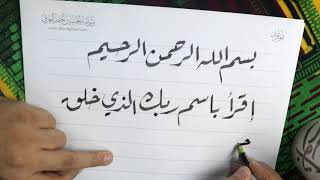 بسم الله الرحمن الرحيم
إقرأ باسم ربك الذي خلق